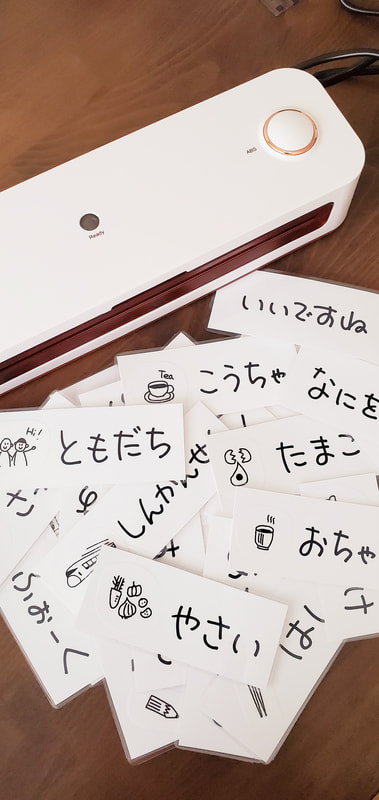 ABS
Ready
いいですね
Tea
こうちゃ
なにを
Hi!
ともだち
たまご
しんかんせ
おちゃ
やさい
ふぉーく